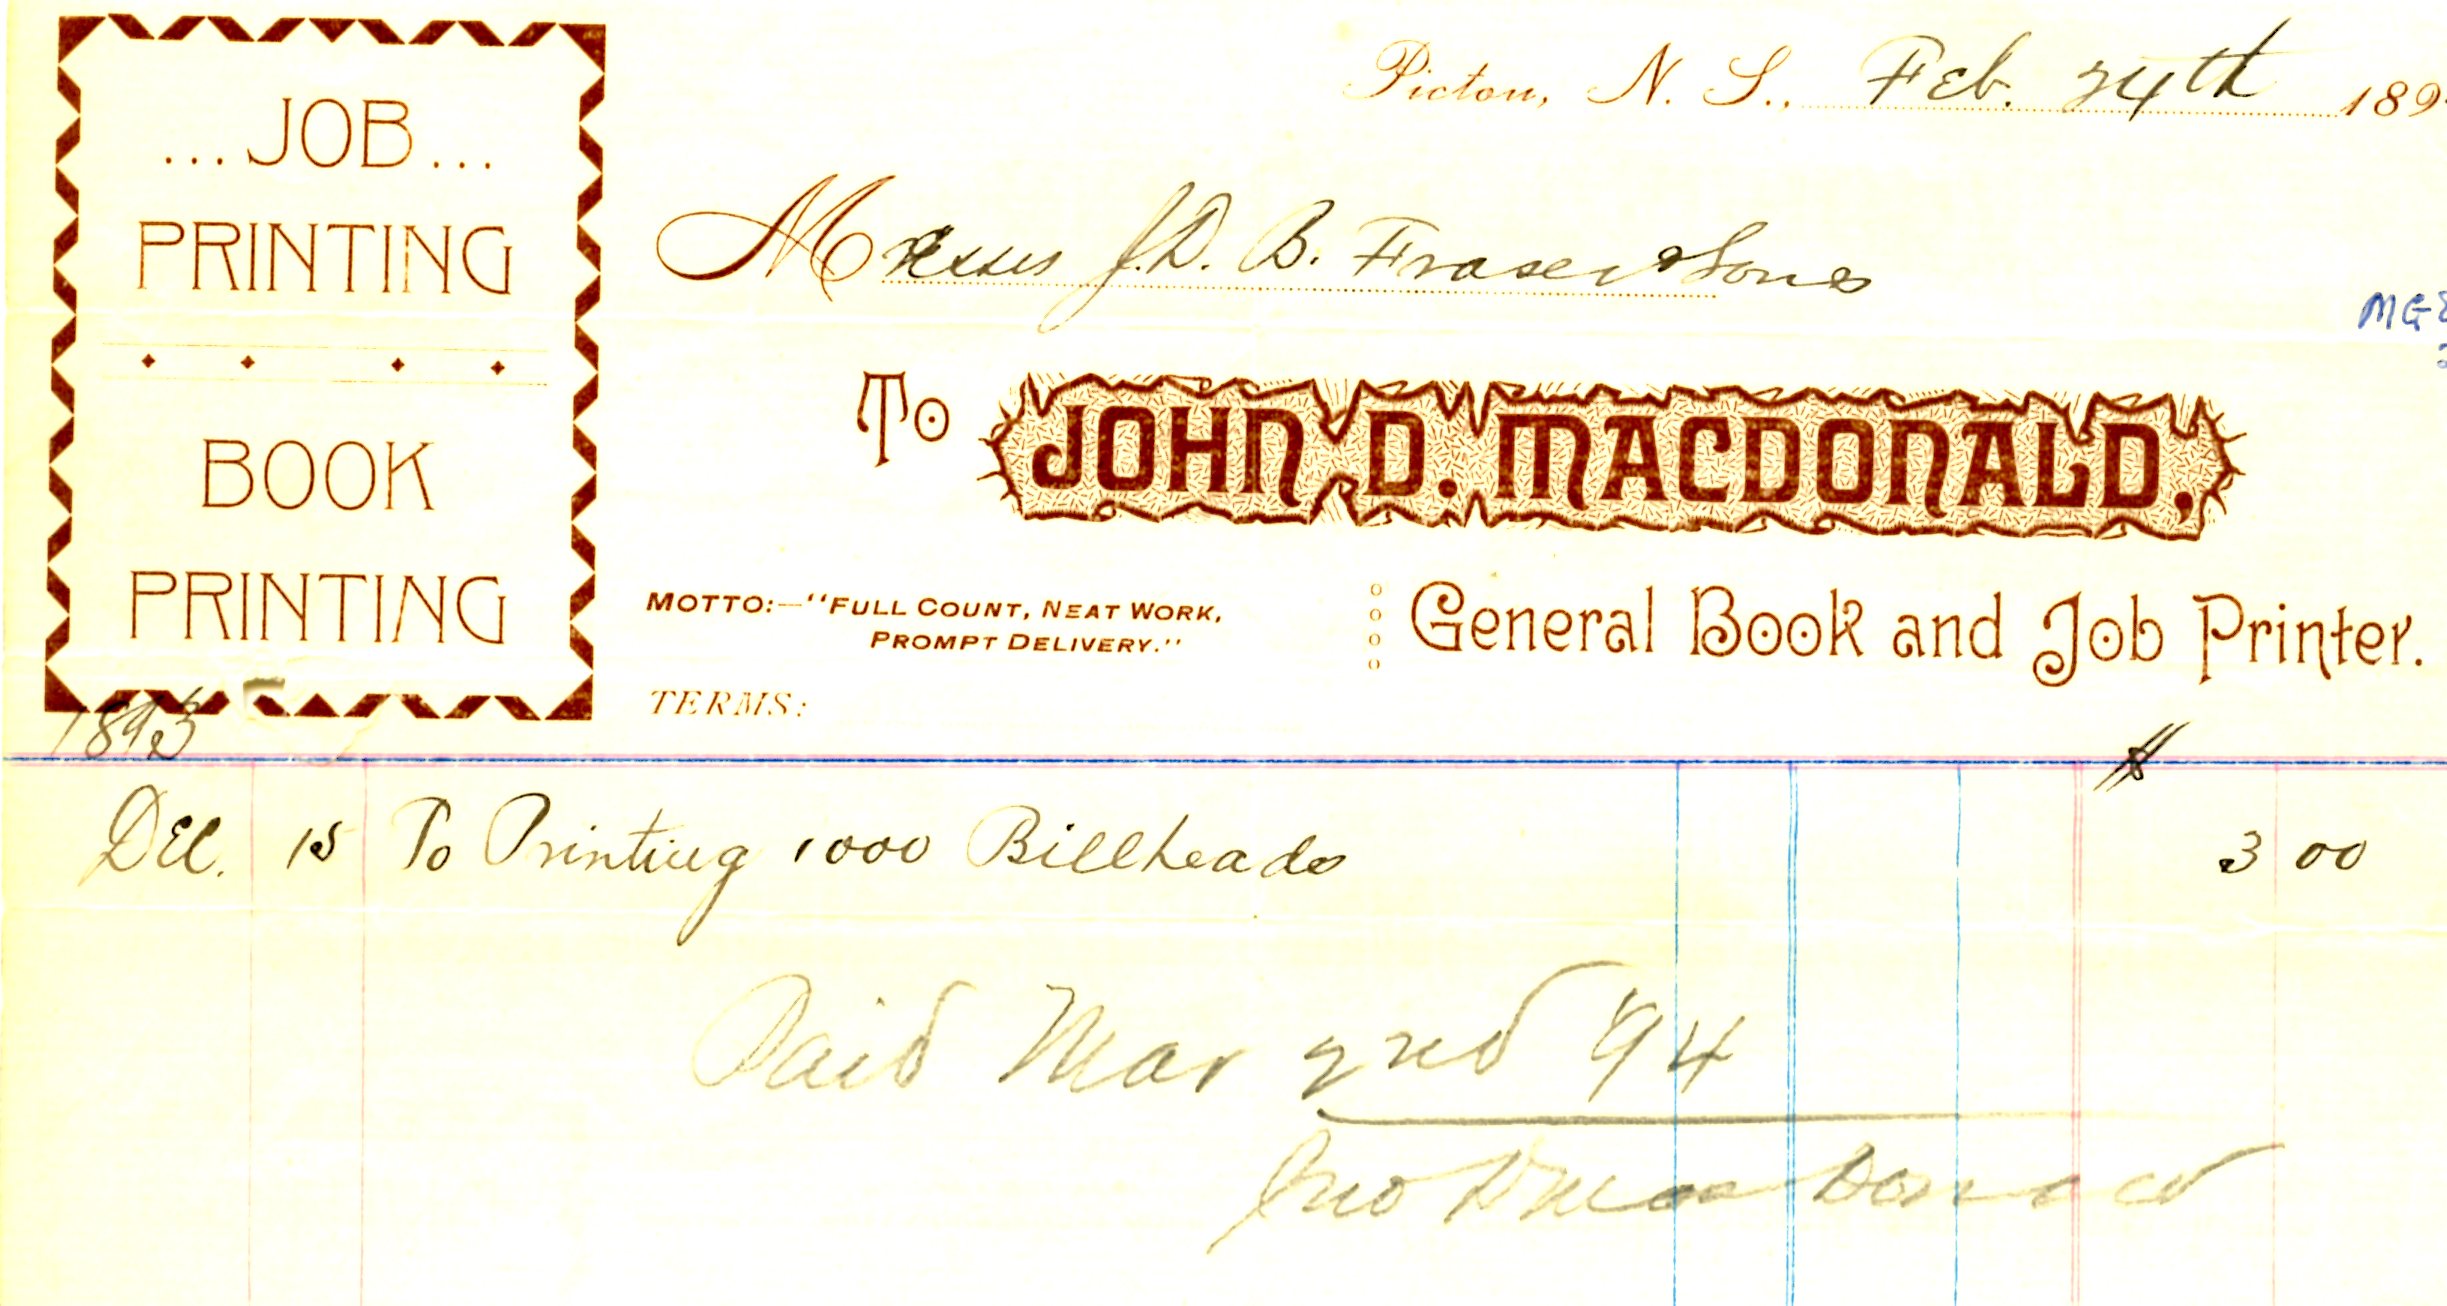 ...JOB...
PRINTING
BOOK
PRINTING
Pictou, N. S., Feb. 24th 189
Messrs J. D. B. Fraser & Sons
MG
To JOHN D. MACDONALD,
MOTTO:—"FULL COUNT, NEAT WORK,
PROMPT DELIVERY."
General Book and Job Printer.
TERMS:
1893
$
Dec. 15 To Printing 1000 Billheads 3 00
Paid Mar 2nd 94
Jno D MacDonald